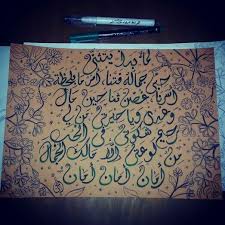 لما بدا يتثنى
حبي جماله فتنا أمر ما بلحظة
أسرنا غصن ثنا حين مال
وعدي ويا حيرتي من لي
رحيم شكوتي في الحب
من لوعتي إلا مالك الجمال
أمان أمان أمان